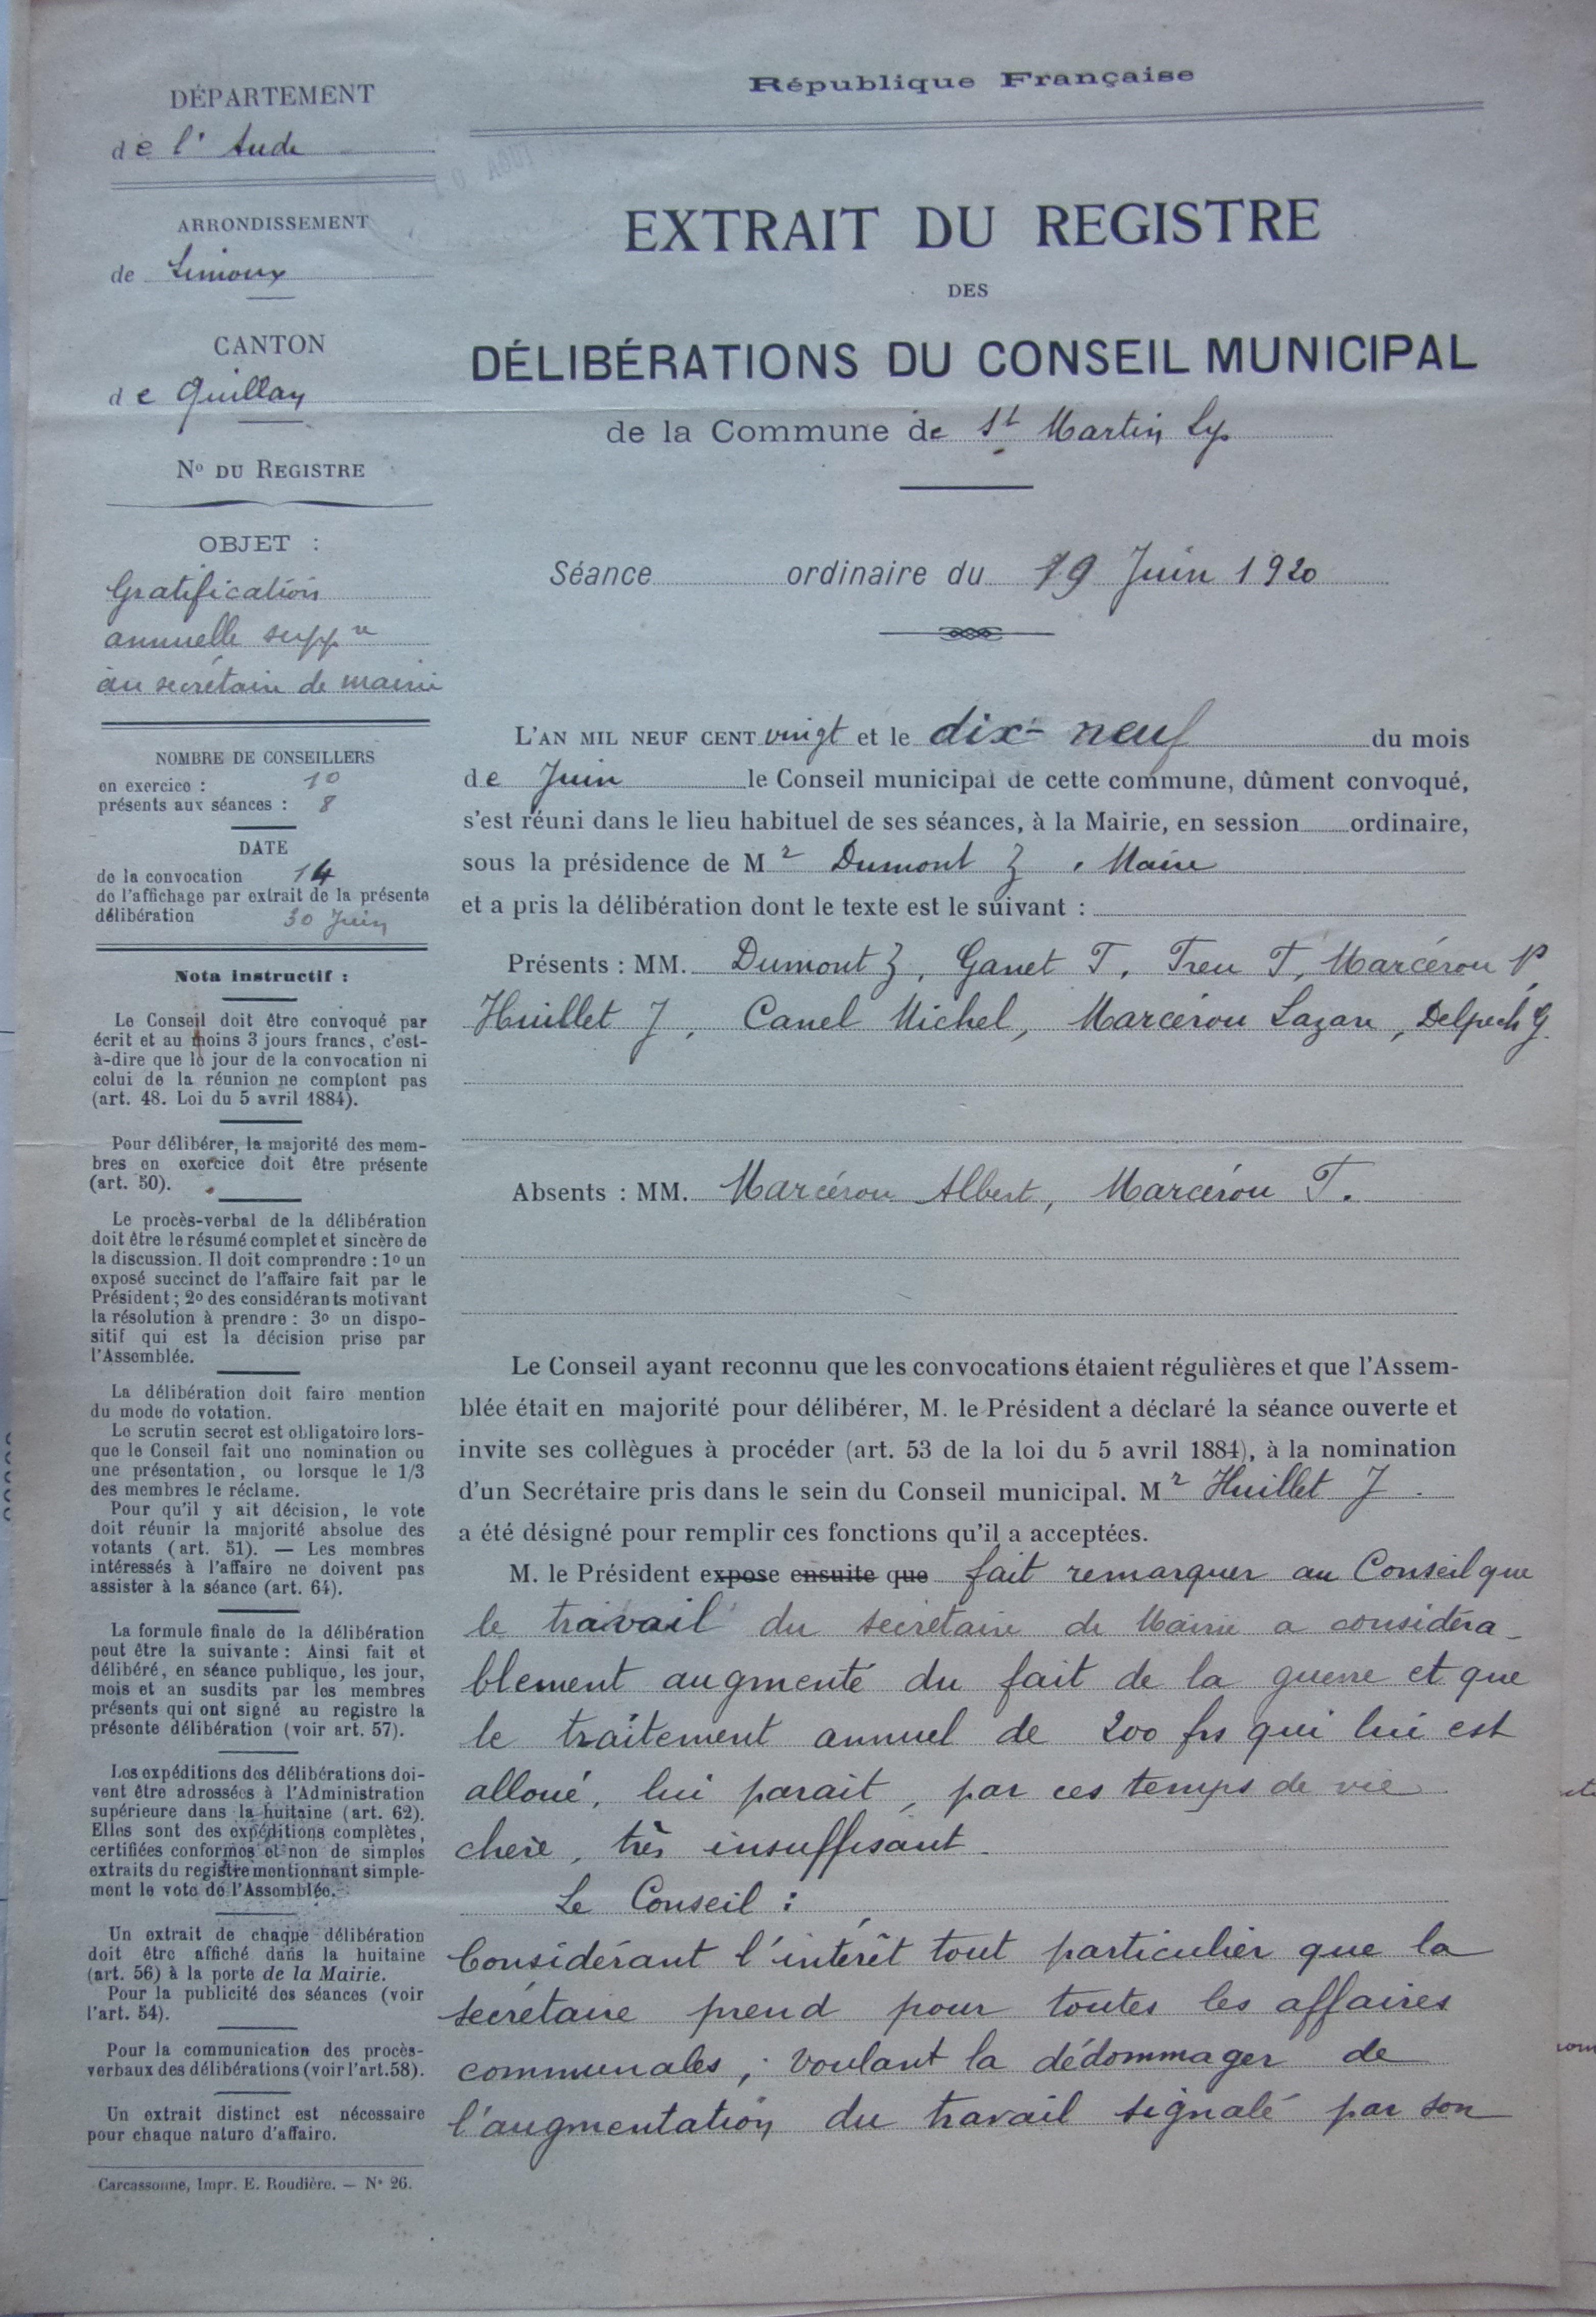 DÉPARTEMENT
de l'Aude
ARRONDISSEMENT
de Limoux
CANTON
de Quillan
No DU REGISTRE
OBJET :
Gratification
annuelle suppre
au secrétaire de mairie
NOMBRE DE CONSEILLERS
en exercice : 10
présents aux séances : 8
DATE
de la convocation 14
de l'affichage par extrait de la présente
délibération 30 Juin
Nota instructif :
Le Conseil doit être convoqué par
écrit et au moins 3 jours francs, c'est-
à-dire que le jour de la convocation ni
celui de la réunion ne comptent pas
(art. 48. Loi du 5 avril 1884).
Pour délibérer, la majorité des mem-
bres en exercice doit être présente
(art. 50).
Le procès-verbal de la délibération
doit être le résumé complet et sincère de
la discussion. Il doit comprendre : 1o un
exposé succinct de l'affaire fait par le
Président ; 2o des considérants motivant
la résolution à prendre : 3o un dispo-
sitif qui est la décision prise par
l'Assemblée.
La délibération doit faire mention
du mode de votation.
Le scrutin secret est obligatoire lors-
que le Conseil fait une nomination ou
une présentation, ou lorsque le 1/3
des membres le réclame.
Pour qu'il y ait décision, le vote
doit réunir la majorité absolue des
votants (art. 51). — Les membres
intéressés à l'affaire ne doivent pas
assister à la séance (art. 64).
La formule finale de la délibération
peut être la suivante : Ainsi fait et
délibéré, en séance publique, les jour,
mois et an susdits par les membres
présents qui ont signé au registre la
présente délibération (voir art. 57).
Les expéditions des délibérations doi-
vent être adressées à l'Administration
supérieure dans la huitaine (art. 62).
Elles sont des expéditions complètes,
certifiées conformes et non de simples
extraits du registre mentionnant simple-
ment le vote de l'Assemblée.
Un extrait de chaque délibération
doit être affiché dans la huitaine
(art. 56) à la porte de la Mairie.
Pour la publicité des séances (voir
l'art. 54).
Pour la communication des procès-
verbaux des délibérations (voir l'art. 58).
Un extrait distinct est nécessaire
pour chaque nature d'affaire.
Carcassonne, Impr. E. Roudière. — No 26.
République Française
EXTRAIT DU REGISTRE
DES
DÉLIBÉRATIONS DU CONSEIL MUNICIPAL
de la Commune de St Martin Lys
Séance ordinaire du 19 Juin 1920
L'AN MIL NEUF CENT vingt et le dix-neuf du mois
de Juin le Conseil municipal de cette commune, dûment convoqué,
s'est réuni dans le lieu habituel de ses séances, à la Mairie, en session ordinaire,
sous la présidence de Mr Dumont Z, Maire
et a pris la délibération dont le texte est le suivant :
Présents : MM. Dumont Z, Ganet T, Treu T, Marcérou P
Huillet J, Canel Michel, Marcérou Lazare, Delpech G.
Absents : MM. Marcérou Albert, Marcérou T.
Le Conseil ayant reconnu que les convocations étaient régulières et que l'Assem-
blée était en majorité pour délibérer, M. le Président a déclaré la séance ouverte et
invite ses collègues à procéder (art. 53 de la loi du 5 avril 1884), à la nomination
d'un Secrétaire pris dans le sein du Conseil municipal. Mr Huillet J.
a été désigné pour remplir ces fonctions qu'il a acceptées.
M. le Président expose ensuite que fait remarquer au Conseil que
le travail du secrétaire de Mairie a considéra-
blement augmenté du fait de la guerre et que
le traitement annuel de 200 frs qui lui est
alloué, lui parait, par ces temps de vie
chère, très insuffisant.
Le Conseil :
Considérant l'intérêt tout particulier que la
secrétaire prend pour toutes les affaires
communales, voulant la dédommager de
l'augmentation du travail signalé par son